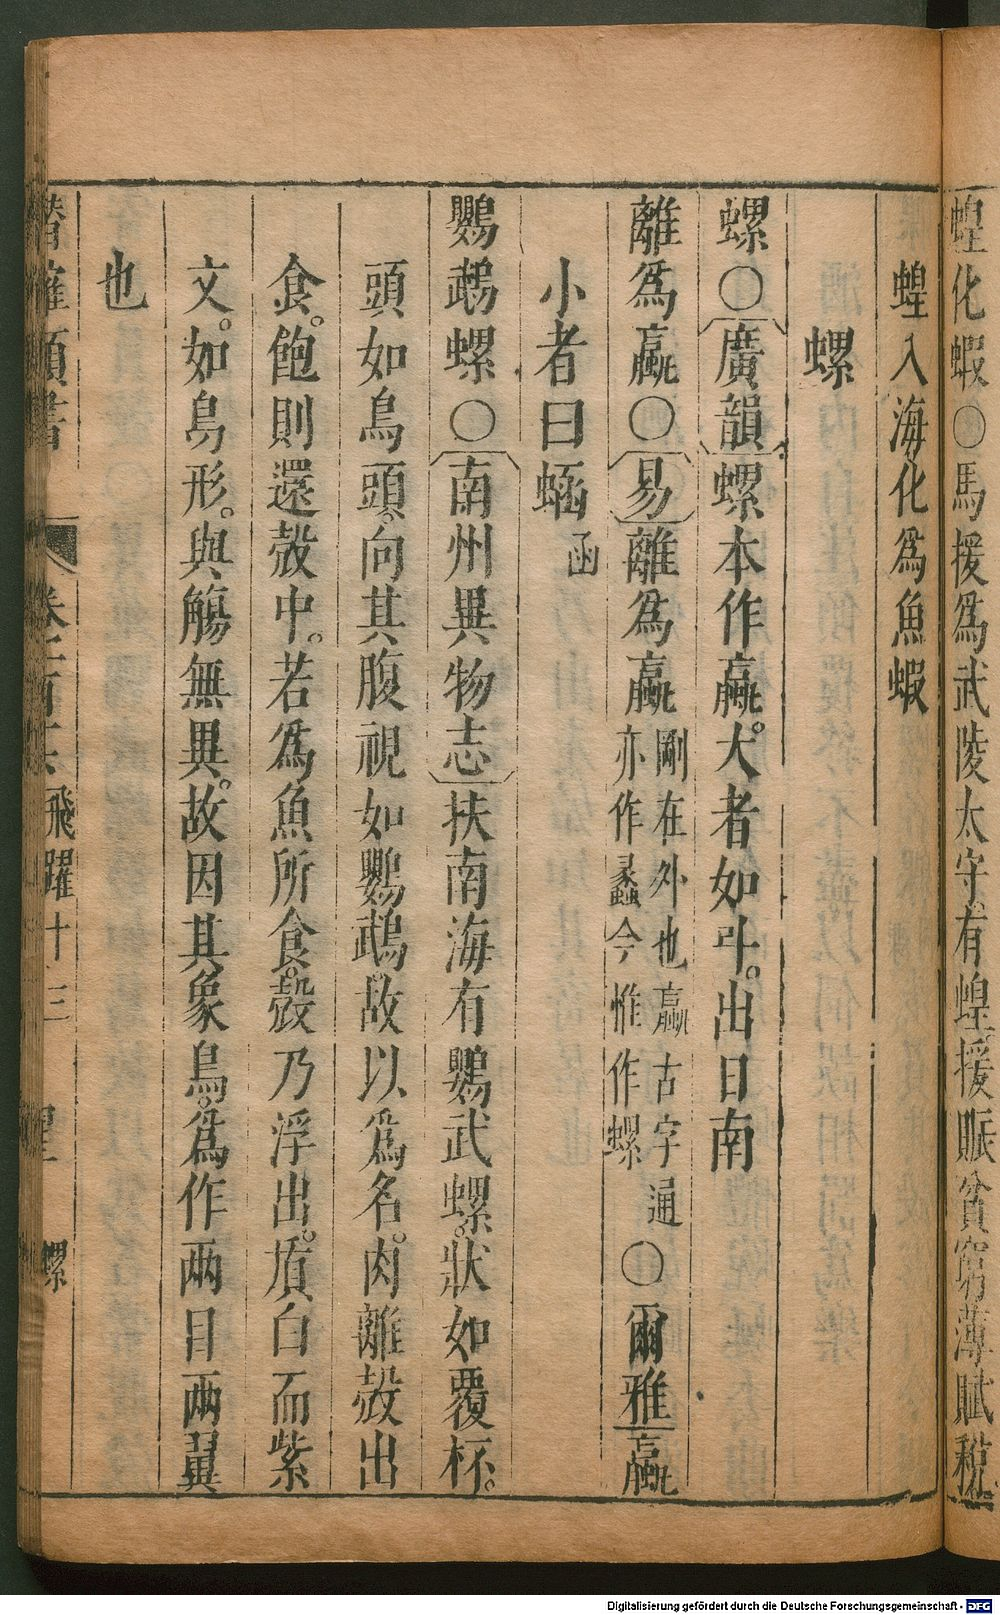 蝗化蝦○馬援爲武陵太守有蝗援賑貧窮薄賦稅
蝗入海化爲魚蝦
螺
螺○廣韻螺本作蠃。大者如斗。出日南
離爲蠃○易離爲蠃剛在外也蠃古字通亦作蠡今惟作螺○爾雅蠃
小者曰蜬函
鸚鵡螺○南州異物志扶南海有鸚武螺。狀如覆杯。
頭如鳥頭。向其腹視如鸚鵡。故以爲名。肉離殼出
食。飽則還殼中。若爲魚所食。殼乃浮出。質白而紫
文。如鳥形。與觴無異。故因其象鳥。爲作兩目兩翼
也
潛確類書 飛躍十三 螺
Digitalisierung gefördert durch die Deutsche Forschungsgemeinschaft - DFG